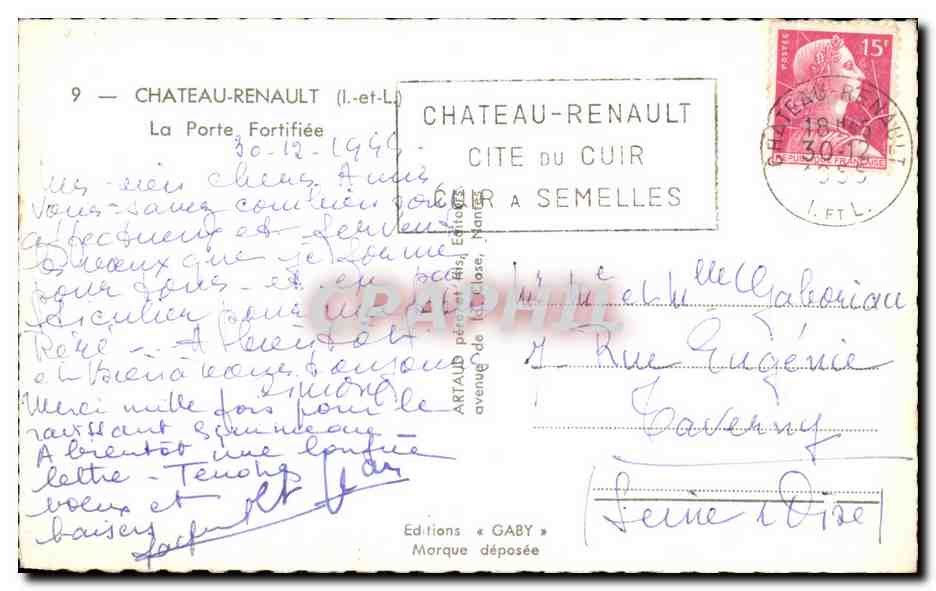 9 — CHATEAU-RENAULT (I.-et-L.)
La Porte Fortifiée
CHATEAU-RENAULT
CITE DU CUIR
CUIR A SEMELLES
POSTES
15F
REPUBLIQUE FRANÇAISE
CHATEAU-RENAULT
18H
30-12
1955
I. ET L.
30-12-1955-
mes bien chers Amis
Vous savez combien sont
affectueux et fervents
les vœux que je forme
pour vous - et en par
ticulier pour
Réré - A bientôt
et bien à vous toujours
Simone
Merci mille fois pour le
ravissant
A bientôt une longue
lettre - Tendres
vœux et
baisers
ARTAUD père et fils, Editeurs
avenue de la Close, Nantes
CPAPHIL
Mr Me et Mlle Gaborian
7 Rue Eugénie
Taverny
(Seine & Oise)
Editions « GABY »
Marque déposée